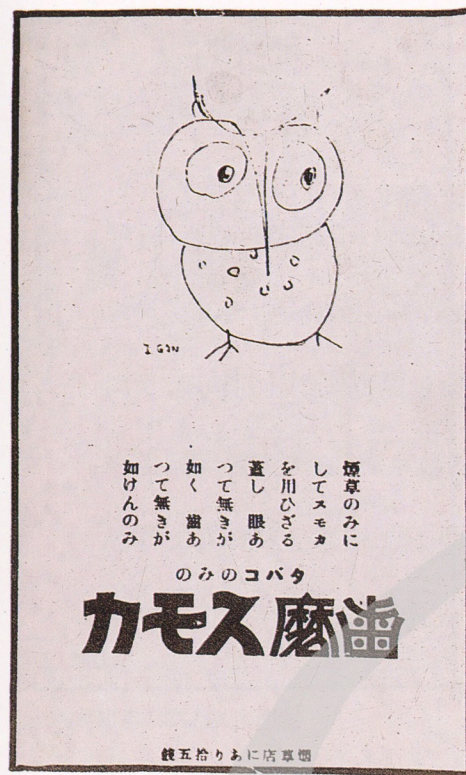 I GON
煙草のみに
してスモカ
を用ひざる
蓋し 眼あ
つて無きが
如く 齒あ
つて無きが
如けんのみ
タバコのみの
歯磨スモカ
烟草店にあり拾五銭